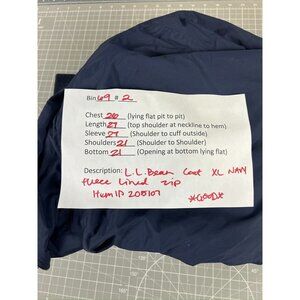 Bin 69 # 2
Chest 26 (lying flat pit to pit)
Length 29 (top shoulder at neckline to hem)
Sleeve 27 (Shoulder to cuff outside)
Shoulders 21 (Shoulder to Shoulder)
Bottom 21 (Opening at bottom lying flat)
Description: L.L.Bean Coat XL NAVY
fleece Lined zip
205107
*GOOD*